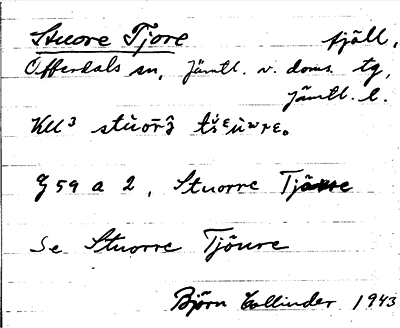 Stuore Tjore fjäll,
Offerdals sn, Jämtl. v. doms. tg,
Jämtl. l.
KU³ stùoꞏrə̑ tšᵋùʷrɛ.
G 59 a 2, Stuorre
Se Stuorre Tjöure
Björn Collinder 1943